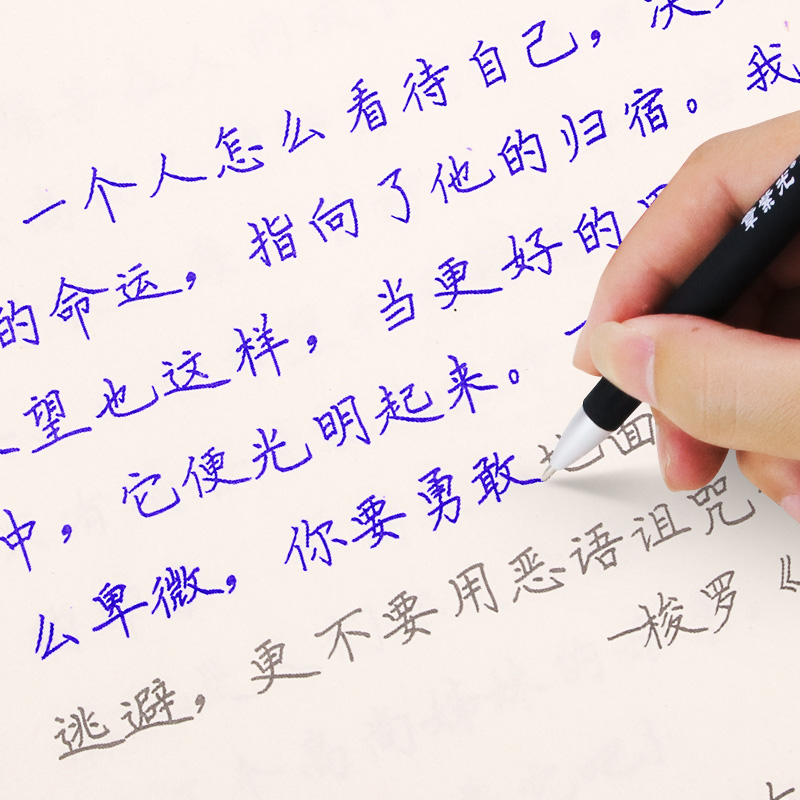 一个人怎么看待自己，决
的命运，指向了他的归宿。我
望也这样，当更好的
中，它便光明起来。一
么卑微，你要勇敢地面
逃避，更不要用恶语诅咒
—梭罗《